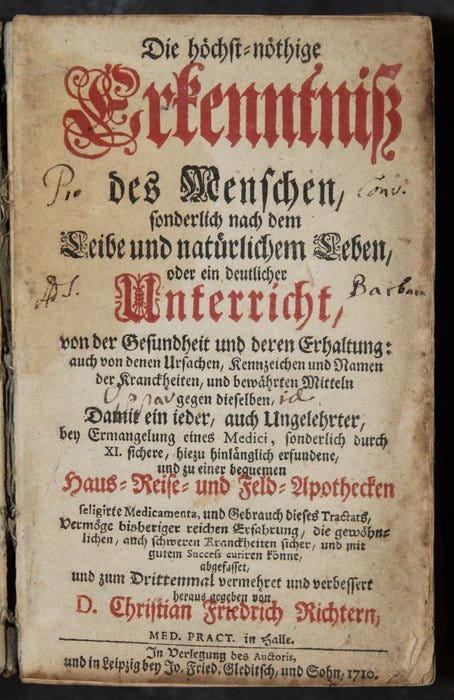 Die höchst-nöthige
Erkenntniß
Pro des Menschen, Conv.
sonderlich nach dem
Leibe und natürlichem Leben,
oder ein deutlicher
Ad S. Barbara
Unterricht,
von der Gesundheit und deren Erhaltung:
auch von denen Ursachen, Kennzeichen und Namen
der Kranckheiten, und bewährten Mitteln
gegen dieselben,
Damit ein ieder, auch Ungelehrter,
bey Ermangelung eines Medici, sonderlich durch
XI. sichere, hiezu hinlänglich erfundene,
und zu einer bequemen
Haus- Reise- und Feld-Apothecken
seligirte Medicamenta, und Gebrauch dieses Tractats,
Vermöge bisheriger reichen Erfahrung, die gewöhn-
lichen, auch schweren Kranckheiten sicher, und mit
gutem Success curiren könne,
abgefasset,
und zum Drittenmal vermehret und verbessert
heraus gegeben von
D. Christian Friedrich Richtern,
MED. PRACT. in Halle.
In Verlegung des Auctoris,
und in Leipzig bey Jo. Fried. Gleditsch, und Sohn, 1710.